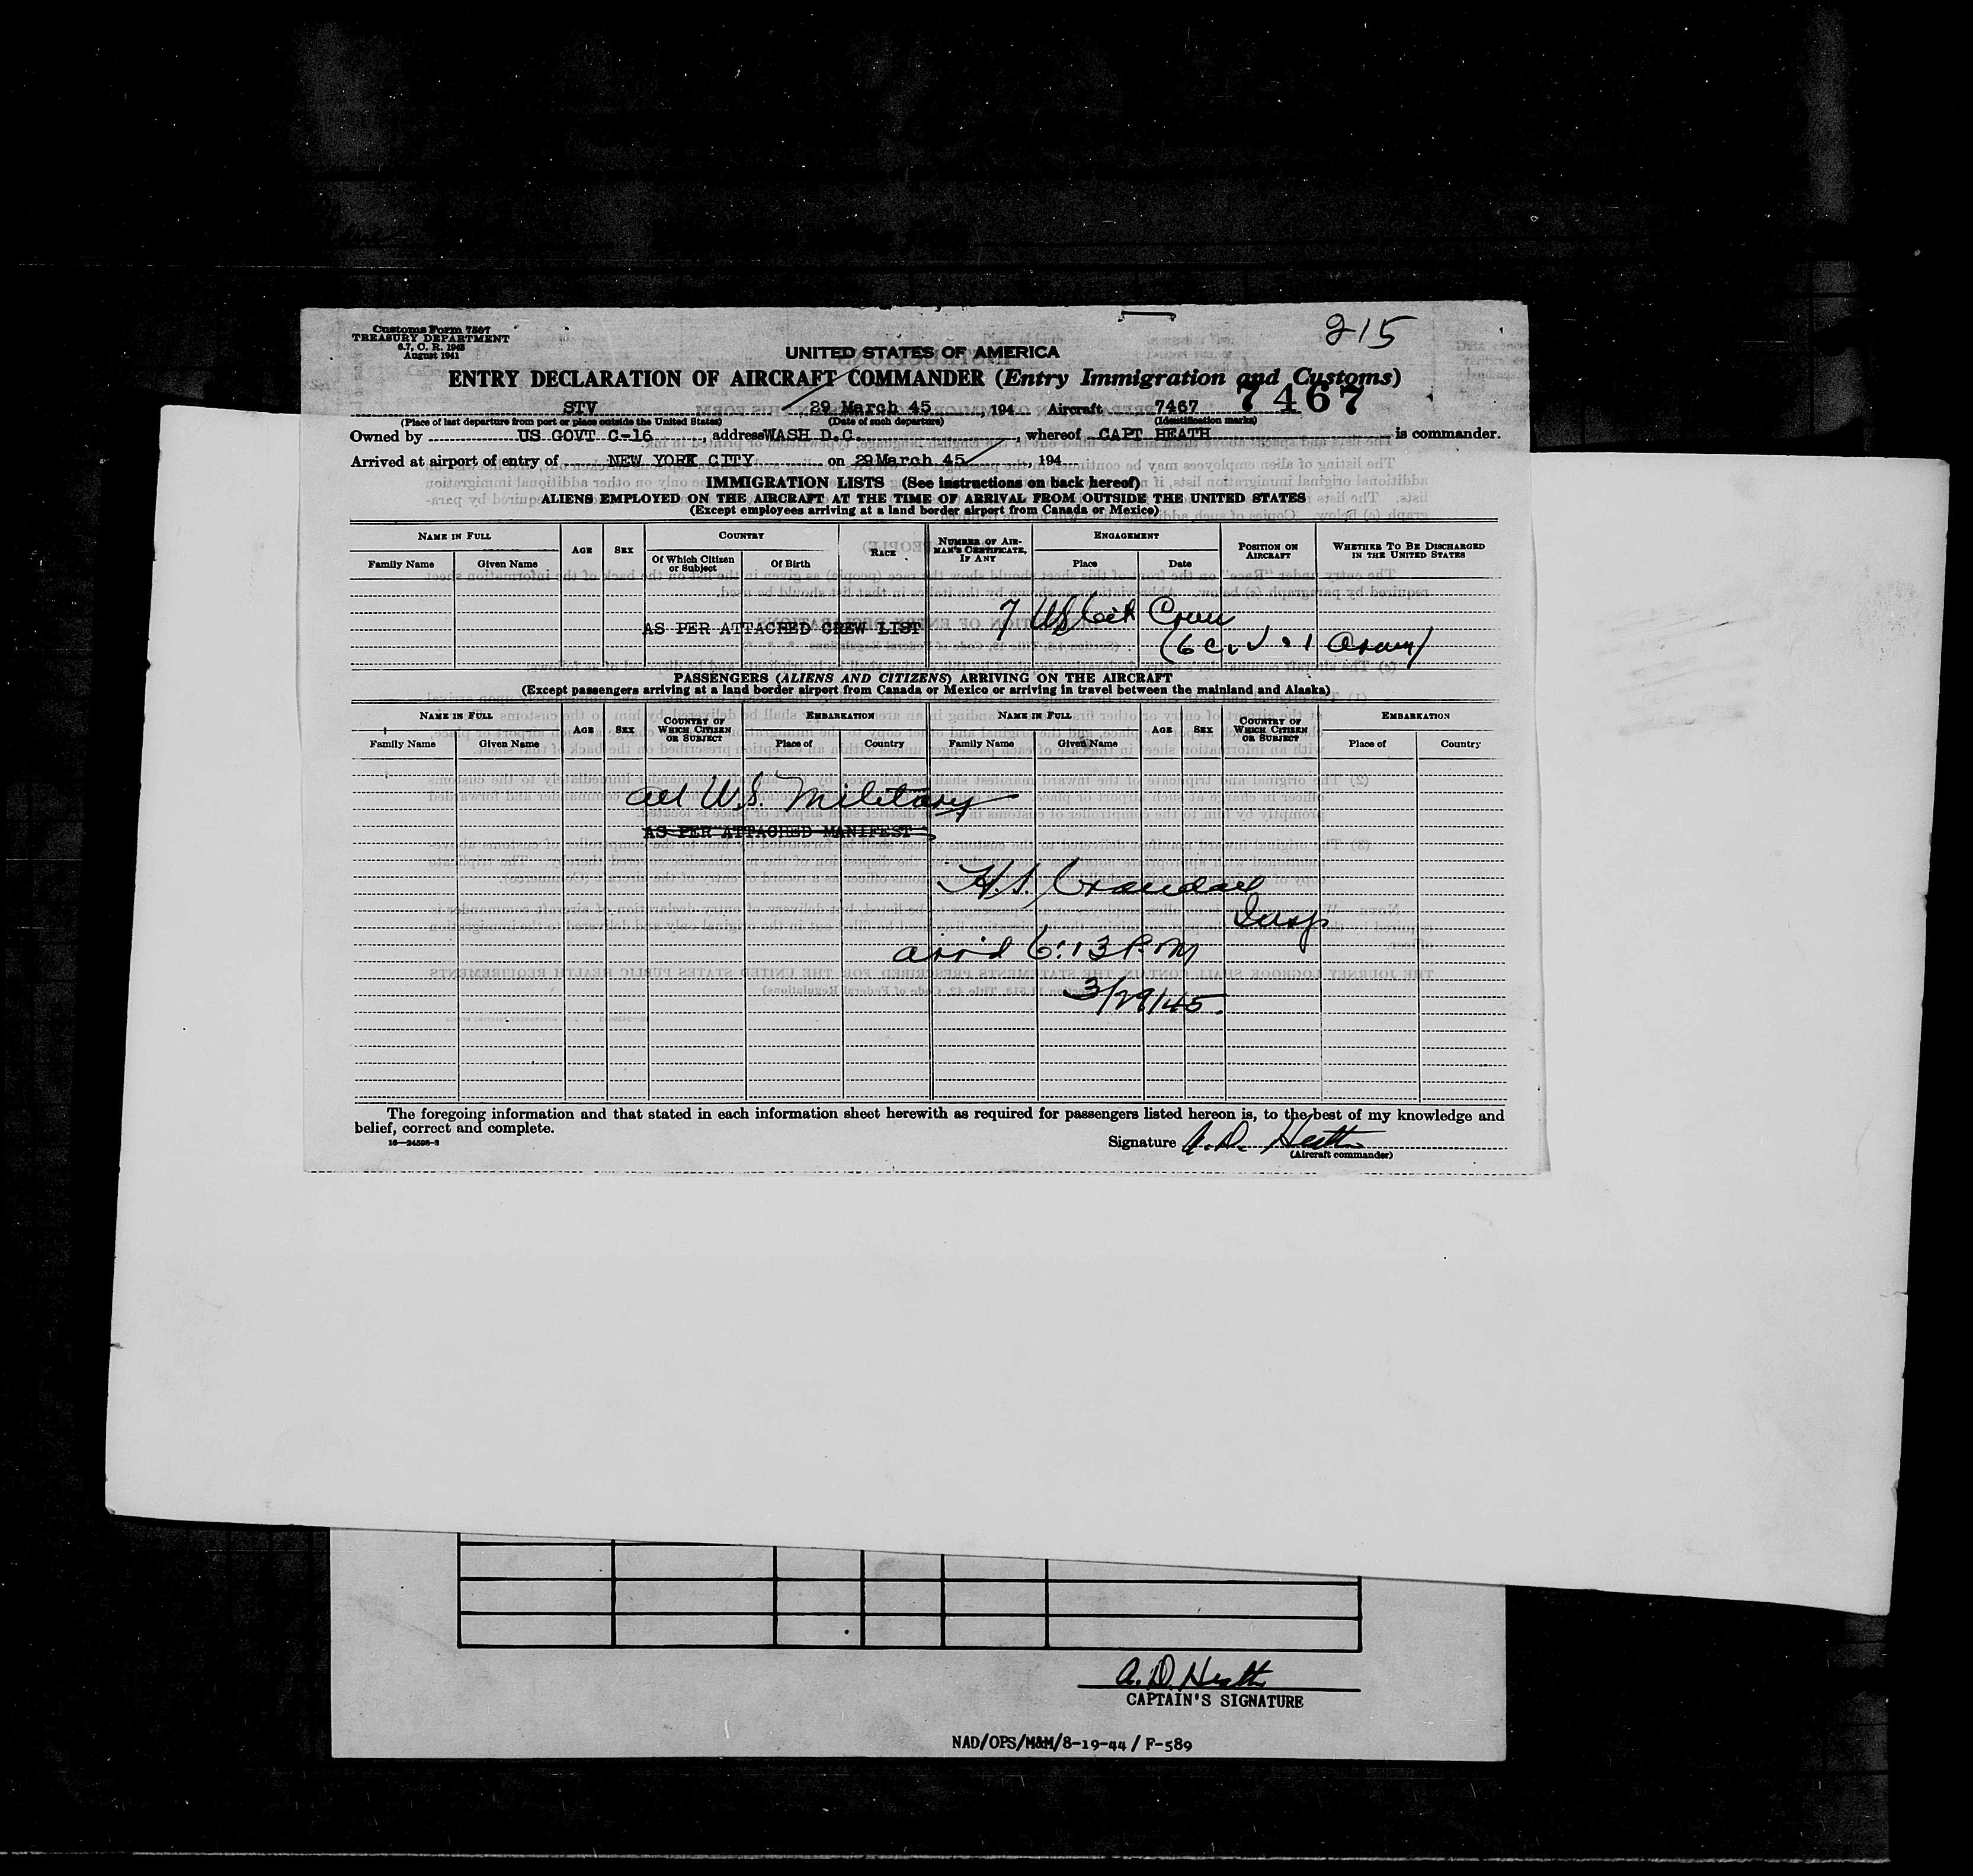 Customs Form 7507
TREASURY DEPARTMENT
6.7, C. R. 1943
August 1941
215
UNITED STATES OF AMERICA
ENTRY DECLARATION OF AIRCRAFT COMMANDER (Entry Immigration and Customs)
7467
STV 29 March 45, 194 Aircraft 7467
(Place of last departure from port or place outside the United States) (Date of such departure) (Identification marks)
Owned by US GOVT C-16, address WASH D.C., whereof CAPT HEATH is commander.
Arrived at airport of entry of NEW YORK CITY on 29 March 45, 194
IMMIGRATION LISTS (See instructions on back hereof)
ALIENS EMPLOYED ON THE AIRCRAFT AT THE TIME OF ARRIVAL FROM OUTSIDE THE UNITED STATES
(Except employees arriving at a land border airport from Canada or Mexico)
NAME IN FULL AGE SEX COUNTRY RACE NUMBER OF AIRMAN'S CERTIFICATE, IF ANY ENGAGEMENT POSITION ON AIRCRAFT WHETHER TO BE DISCHARGED IN THE UNITED STATES
Family Name Given Name Of Which Citizen or Subject Of Birth Place Date
7 US Cit Crew
AS PER ATTACHED CREW LIST
(6 Civ 1 Army)
PASSENGERS (ALIENS AND CITIZENS) ARRIVING ON THE AIRCRAFT
(Except passengers arriving at a land border airport from Canada or Mexico or arriving in travel between the mainland and Alaska)
NAME IN FULL AGE SEX COUNTRY OF WHICH CITIZEN OR SUBJECT EMBARKATION NAME IN FULL AGE SEX COUNTRY OF WHICH CITIZEN OR SUBJECT EMBARKATION
Family Name Given Name Place of Country Family Name Given Name Place of Country
all U.S. Military
AS PER ATTACHED MANIFEST
H.S. Crandall
Insp
arr'd 6:13 P.M
3/29/45.
The foregoing information and that stated in each information sheet herewith as required for passengers listed hereon is, to the best of my knowledge and
belief, correct and complete.
16—24598-3
Signature A. D. Heath
(Aircraft commander)
A. D. Heath
CAPTAIN'S SIGNATURE
NAD/OPS/M&M/8-19-44 / F-589